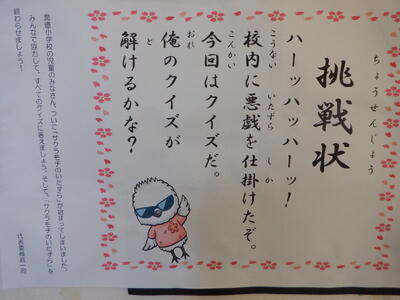 ちょうせんじょう
挑戦状
ハーッハッハーッ!
こうない いたずら しか
校内に悪戯を仕掛けたぞ。
こんかい
今回はクイズだ。
おれ
俺のクイズが
と
解けるかな?
小学校の児童のみなさん、ついに「サクラモ子のいたずら」が始まってしまいました。
みんなで協力して、すべてのクイズに答えましょう。そして、「サクラモ子のいたずら」を
終わらせましょう!
代表委員会一同